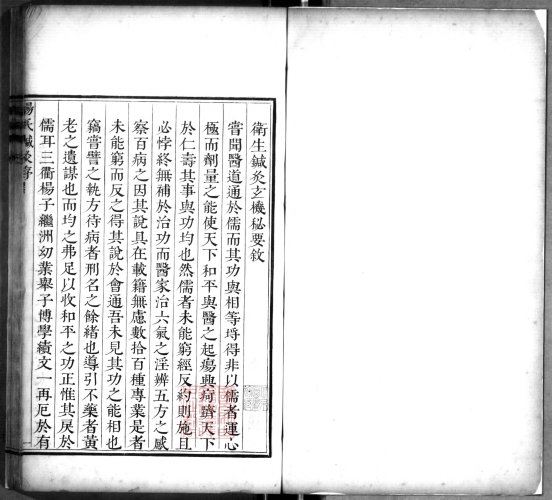 衛生鍼灸玄機秘要敘
嘗聞醫道通於儒而其功與相等埒得非以儒者運心
極而劑量之能使天下和平與醫之起瘍興痾躋天下
於仁壽其事與功均也然儒者未能窮經反約則施且
必悖終無補於治功而醫家治六氣之淫辨五方之感
察百病之因其說具在載籍無慮數拾百種專業是者
未能窮而反之得其說於會通吾未見其功之能相也
竊嘗譬之執方待病者刑名之餘緒也導引不藥者黃
老之遺謀也而均之弗足以收和平之功正惟其戾於
儒耳三衢楊子繼洲幼業舉子博學績文一再厄於有
楊氏鍼灸序
一